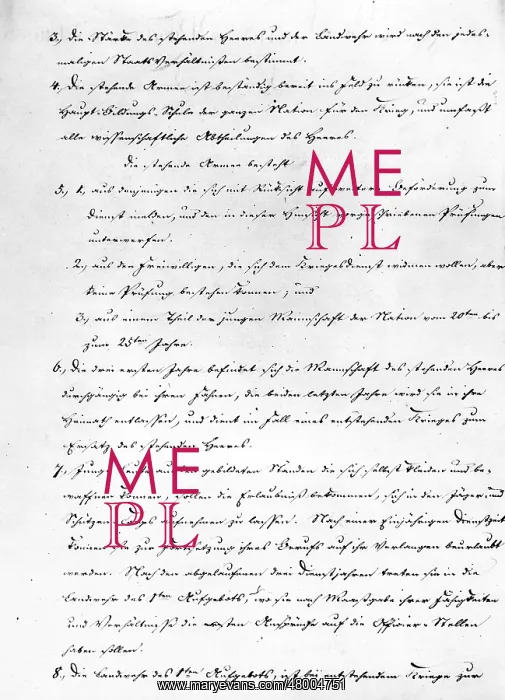 3., die Stärke des stehenden Heeres und der Landwehr wird nach den jedes-
maligen Staats Verhältnißen bestimmt.
4., die stehende Armee ist beständig bereit ins Feld zu rücken, sie ist die
Haupt-Bildungs Schule der ganzen Nation für den Krieg, und umfaßt
alle wissenschaftliche Abtheilungen des Heeres.
die stehende Armee besteht
ME
PL
5., 1, aus denjenigen die sich mit Rücksicht auf weitere Beförderung zum
dienst melden, und den in dieser Hinsicht vorgeschriebenen Prüfungen
unterwerfen.
2., aus den Freiwilligen, die sich dem Kriegesdienst widmen wollen, aber
keine Prüfung bestehen können; und
3., aus einem Theil der jungen Mannschaft der Nation vom 20ten bis
zum 25ten Jahre.
6., die drei ersten Jahre befindet sich die Mannschaft des stehenden Heeres
durchgängig bei ihren Fahnen, die beiden letzten Jahre wird sie in ihre
Heimath entlassen, und dient im Fall eines entstehenden Krieges zum
Ersatz des stehenden Heeres.
ME
PL
7., Junge Leute aus gebildeten Ständen die sich selbst kleiden und be-
waffnen können, sollen die Erlaubniß bekommen, sich in den Jäger und
Schützen aufnehmen zu lassen. Nach einer Einjährigen Dienstzeit
können sie zur Fortsetzung ihres Berufs auf ihr Verlangen beurlaubt
werden. Nach den abgelaufenen drei dienstjahren treten sie in die
Landwehr des 1ten Aufgebots, wo sie nach Maasgabe ihrer Fähigkeiten
und Verhältniße die ersten Ansprüche auf die Officier-Stellen
haben sollen.
8., die Landwehr des 1ten Aufgebots, ist bei entstehendem Kriege zur
www.maryevans.com/48004751